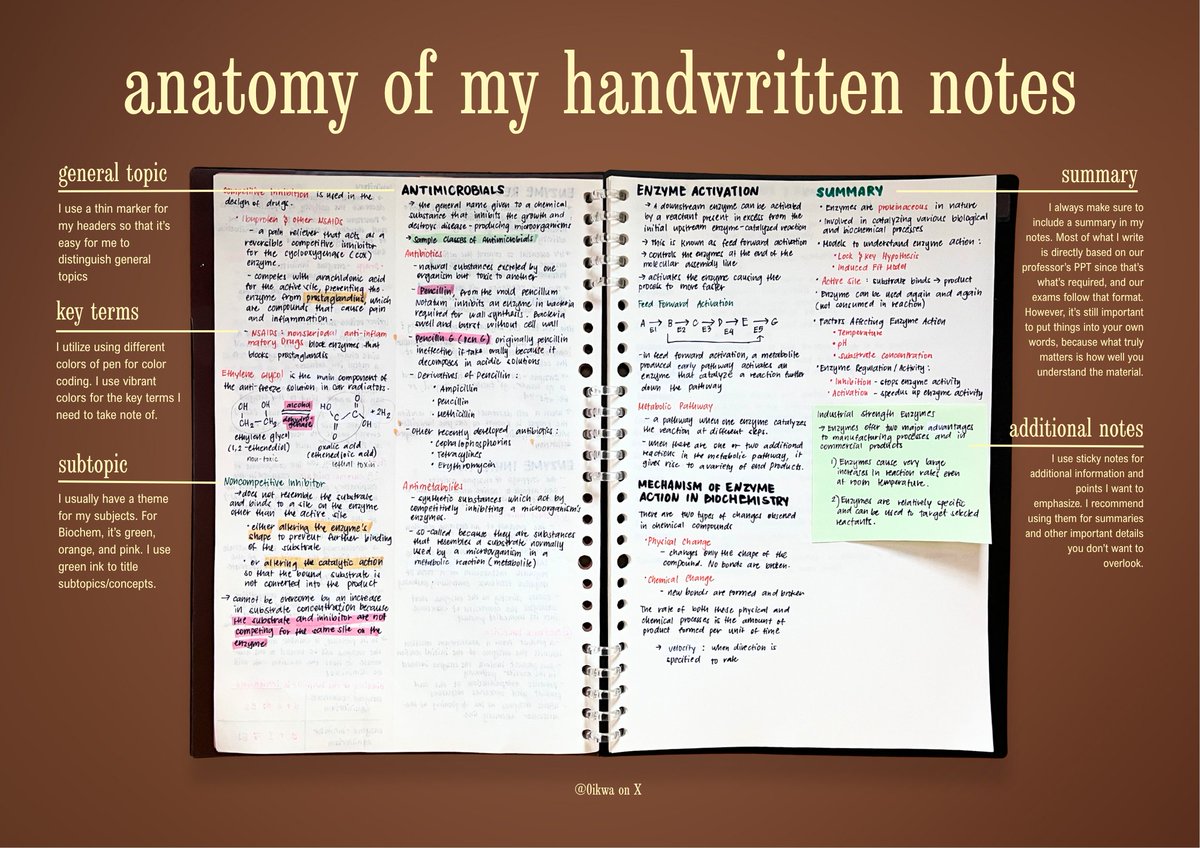 anatomy of my handwritten notes
general topic
I use a thin marker for
my headers so that it's
easy for me to
distinguish general
topics
key terms
I utilize using different
colors of pen for color
coding. I use vibrant
colors for the key terms I
need to take note of.
subtopic
I usually have a theme
for my subjects. For
Biochem, it's green,
orange, and pink. I use
green ink to title
subtopics/concepts.
Competitive Inhibition is used in the
design of drugs.
• Ibuprofen & other NSAIDs
- a pain reliever that acts as a
reversible competitive inhibitor
for the cyclooxygenase (cox)
enzyme.
- competes with arachidonic acid
for the active site, preventing the
enzyme from prostaglandins, which
are compounds that cause pain
and inflammation.
- NSAIDs: nonsteriodal anti-inflam
matory Drugs block enzymes that
blocks prostaglandis
Ethylene Glycol is the main component of
the anti-freeze solution in car radiators.
OH OH
CH₂ - CH₂
alcohol
dehydro-
genase
HO O
C - C
O OH
+ 2H₂
ethylene glycol
(1,2-ethenediol)
non-toxic
oxalic acid
(ethenedioic acid)
lethal toxin
Noncompetitive Inhibitor
→ does not resemble the substrate
and binds to a site on the enzyme
other than the active site
• either altering the enzyme's
shape to prevent further binding
of the substrate
• or altering the catalytic action
so that the bound substrate is
not converted into the product
→ cannot be overcome by an increase
in substrate concentration because
the substrate and inhibitor are not
competing for the same site on the
enzyme
ANTIMICROBIALS
→ the general name given to a chemical
substance that inhibits the growth and
destroys disease-producing microorganisms
→ Sample classes of Antimicrobials
Antibiotics
- natural substances excreted by one
organism but toxic to another
- Pencillin, from the mold pencillum
Notatum inhibits an enzyme in bacteria
required for wall synthesis. Bacteria
swell and burst without cell wall
- Pencillin G (Pen G) originally pencillin
ineffective if take orally because it
decomposes in acidic solutions
- Derivatives of Pencillin:
• Ampicillin
• Pencillin
• Methicillin
- Other recently developed antibiotics:
• cephalophosphorins
• Tetracylines
• Erythromycin
Antimetabolites
- synthetic substances which act by
competitively inhibiting a microorganism's
enzymes.
- so-called because they are substances
that resembles a substrate normally
used by a microorganism in a
metabolic reaction (metabolite)
ENZYME ACTIVATION
→ A downstream enzyme can be activated
by a reactant present in excess from the
initial upstream enzyme-catalyzed reaction
→ This is known as feed forward activation
→ controls the enzymes at the end of the
molecular assembly line
→ activates the enzyme causing the
process to move faster
Feed Forward Activation
A → B → C → D → E → G
E1 E2 E3 E4 E5
- in feed forward activation, a metabolite
produced early pathway activates an
enzyme that catalyze a reaction further
down the pathway
Metabolic Pathway
- a pathway when one enzyme catalyzes
the reaction at different steps.
- when there are one or two additional
reactions in the metabolic pathway, it
gives rise to a variety of end products.
MECHANISM OF ENZYME
ACTION IN BIOCHEMISTRY
There are two types of changes observed
in chemical compounds
• Physical Change
- changes only the shape of the
compound. No bonds are broken.
• Chemical Change
- new bonds are formed and broken
The rate of both these physical and
chemical processes is the amount of
product formed per unit of time
→ velocity: when direction is
specified to rate
SUMMARY
• Enzymes are proteinaceous in nature
• Involved in catalyzing various biological
and biochemical processes
• Models to understand enzyme action:
• Lock & key Hypothesis
• Induced Fit Model
• Active site: substrate binds → product
• Enzyme can be used again and again
(not consumed in reaction)
• Factors Affecting Enzyme Action
• Temperature
• pH
• substrate concentration
• Enzyme Regulation/Activity:
• Inhibition - stops enzyme activity
• Activation - speeds up enzyme activity
Industrial Strength Enzymes
→ Enzymes offer two major advantages
to manufacturing processes and in
commercial products
1) Enzymes cause very large
increases in reaction rates even
at room temperature.
2) Enzymes are relatively specific
and can be used to target selected
reactants.
summary
I always make sure to
include a summary in my
notes. Most of what I write
is directly based on our
professor's PPT since that's
what's required, and our
exams follow that format.
However, it's still important
to put things into your own
words, because what truly
matters is how well you
understand the material.
additional notes
I use sticky notes for
additional information and
points I want to
emphasize. I recommend
using them for summaries
and other important details
you don't want to
overlook.
@0ikwa on X